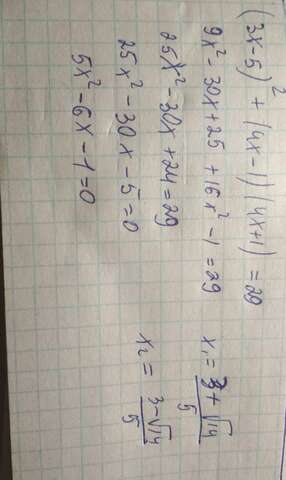 (3x-5)² + (4x-1)(4x+1) = 29
9x² - 30x + 25 + 16x² - 1 = 29
25x² - 30x + 24 = 29
25x² - 30x - 5 = 0
5x² - 6x - 1 = 0
x₁ = (3+√14)/5
x₂ = (3-√14)/5